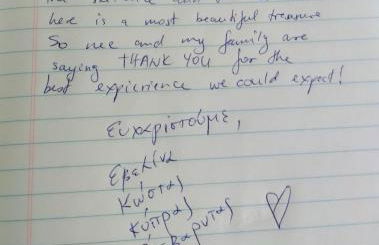 here is a most beautiful treasure
So nee and my family are
saying THANK YOU for the
best expicrience we could expect!
Ευχαριστούμε,
Εβελίνα
Κώστας
Κύπρος